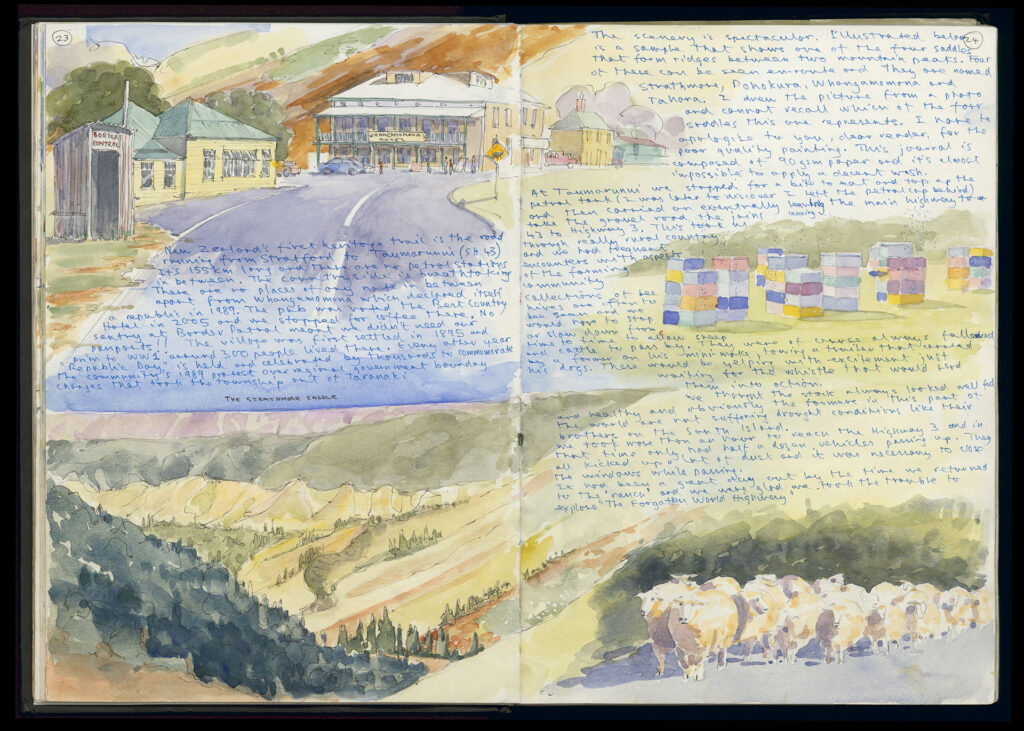 23
BORDER
CONTROL
WHANGAMOMONA
HOTEL
New Zealand's first heritage trail is the road
running from Stratford to Taumarunui (SH 43)
It's 155km long and there are no petrol stations
in between. It covers considerable breathtaking
There are no places of any note in between
apart from Whangamomona which declared itself
a republic in 1989. The pub was voted the Best Country
Hotel in 2005 and we stopped for coffee there. No
sentry Border Patrol meant we didn't need our
passports!! The village was first settled in 1895 and
prior to WW1 around 300 people lived there. Every other year
Republic Day is held and celebrated by thousands to commemorate
the community's 1989 protest over regional government boundary
changes that took the township out of Taranaki
THE STRATHMORE SADDLE
24
The scenery is spectacular. Illustrated below
is a sample that shows one of the four saddles
that form ridges between two mountain peaks. Four
of these can be seen en-route and they are named
Strathmore, Pohokura, Whangamomona and
Tahora. I drew the picture from a photo
and cannot recall which of the four
saddles this one represents. I have to
apologize to you, dear reader, for the
poor quality painting. This journal is
composed of 90gsm paper and it's almost
impossible to apply a decent wash.
At Taumarunui we stopped for a bite to eat and top up the
petrol tank (I was later to discover I left the petrol cap behind)
and then carried on eventually leaving the main highway to
leaving
take the gravel road the joins
43 to Highway 3. This took us
through really rural country
and we had frequent
encounters with aspects
of the farming
community
Collections of bee
hives are often to
be seen and we
would have to stop
or slow down from
time to time to allow sheep
and cattle to pass by. They were of course always followed
by a farmer on his 'mini-moke' towing a trailer that carried
his dogs. There would be yelping with excitement just
waiting for the whistle that would send
them into action.
We thought the stock always looked well fed
and healthy and obviously the farmers in this part of
the world are not suffering drought conditions like their
brothers on the South Island.
We took more than an hour to reach the Highway 3 and in
that time only had half a dozen vehicles passing up. They
all kicked up a lot of dust and it was necessary to close
the windows while passing.
It had been a great day out by the time we returned
to the ranch and we were glad we took the trouble to
explore "The Forgotten World Highway"